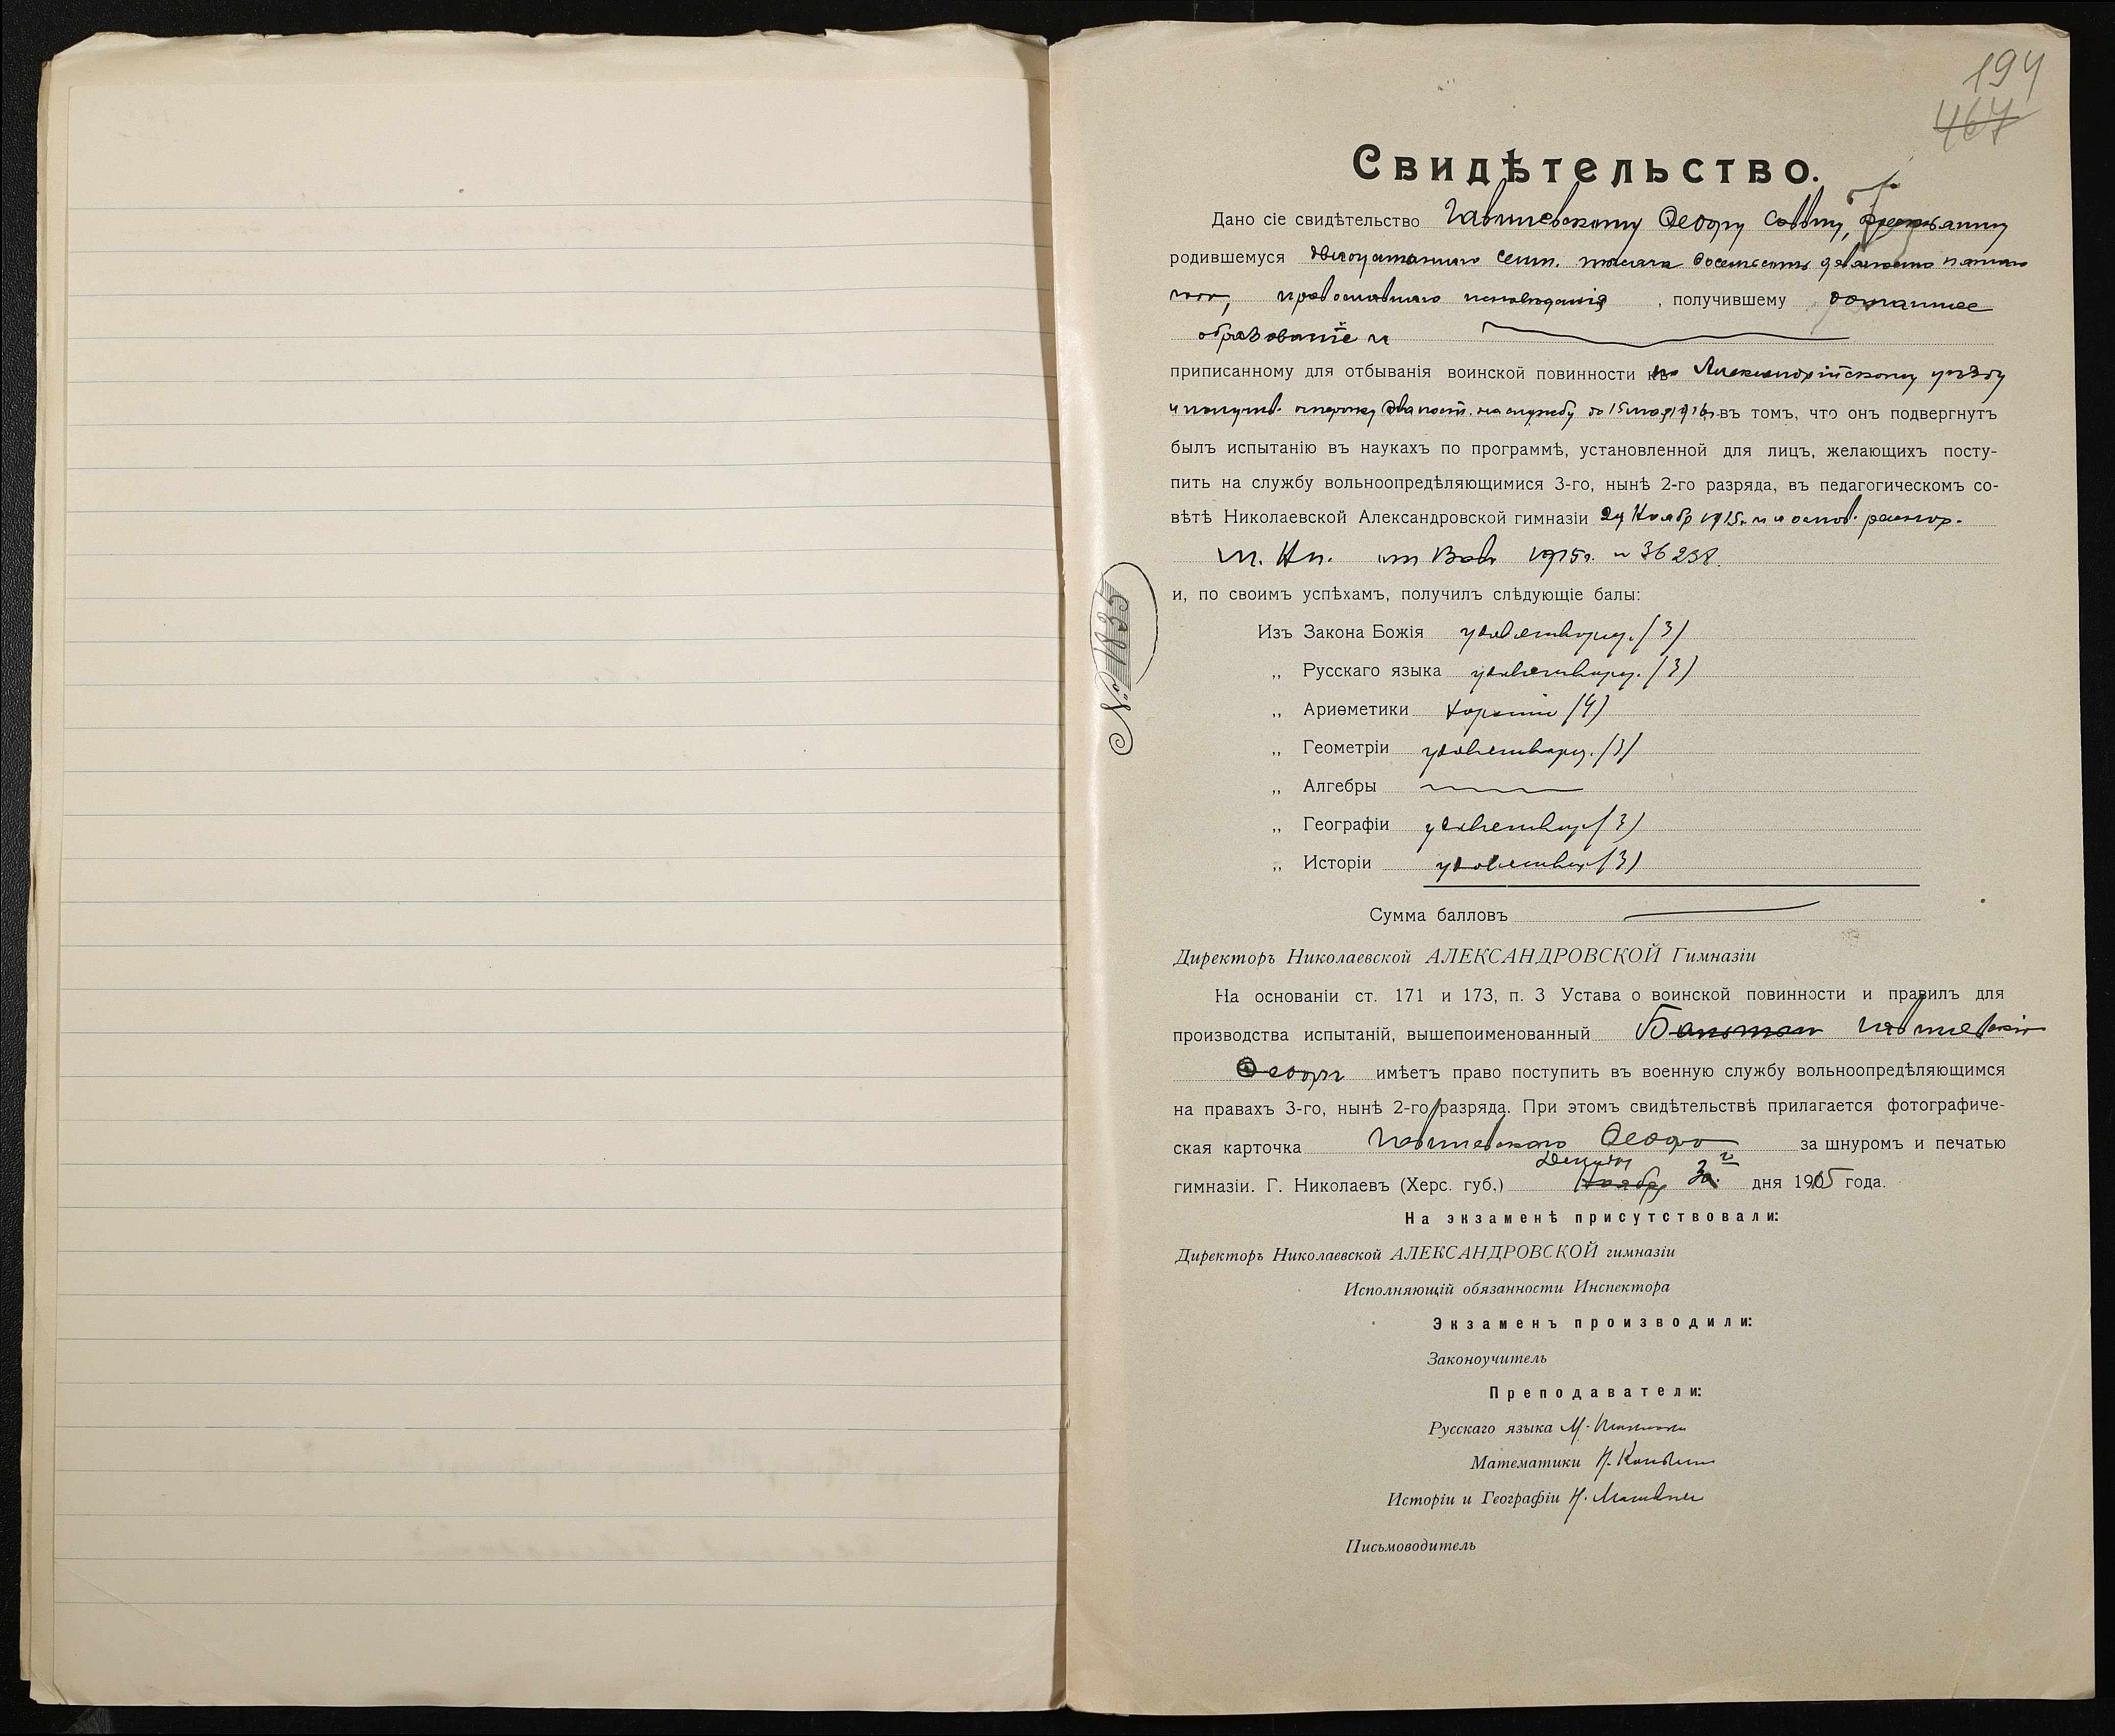 194
467
Свидѣтельство.
Дано сіе свидѣтельство Ѳедору
родившемуся сент. тысяча восемьсотъ девяносто
православнаго исповѣданія , получившему домашнее
образованіе и
приписанному для отбыванія воинской повинности къ Александрійскому уѣзду
на службу до 15 мая 1916 г. въ томъ, что онъ подвергнутъ
былъ испытанію въ наукахъ по программѣ, установленной для лицъ, желающихъ посту-
пить на службу вольноопредѣляющимися 3-го, нынѣ 2-го разряда, въ педагогическомъ со-
вѣтѣ Николаевской Александровской гимназіи 24 Ноябр 1915 г. и на основ. распор.
1915 г. № 36238.
и, по своимъ успѣхамъ, получилъ слѣдующіе балы:
№ 1835
Изъ Закона Божія удовлетворит. (3)
„ Русскаго языка удовлетворит. (3)
„ Ариѳметики хорошіе (4)
„ Геометріи удовлетворит. (3)
„ Алгебры
„ Географіи удовлетвор (3)
„ Исторіи удовлетвор (3)
Сумма балловъ
Директоръ Николаевской АЛЕКСАНДРОВСКОЙ Гимназіи
На основаніи ст. 171 и 173, п. 3 Устава о воинской повинности и правилъ для
производства испытаній, вышепоименованный
Ѳедоръ имѣетъ право поступить въ военную службу вольноопредѣляющимся
на правахъ 3-го, нынѣ 2-го разряда. При этомъ свидѣтельствѣ прилагается фотографиче-
ская карточка Ѳедора за шнуромъ и печатью
гимназіи. Г. Николаевъ (Херс. губ.) Ноября дня 1915 года.
На экзаменѣ присутствовали:
Директоръ Николаевской АЛЕКСАНДРОВСКОЙ гимназіи
Исполняющій обязанности Инспектора
Экзаменъ производили:
Законоучитель
Преподаватели:
Русскаго языка М.
Математики Н.
Исторіи и Географіи Н.
Письмоводитель